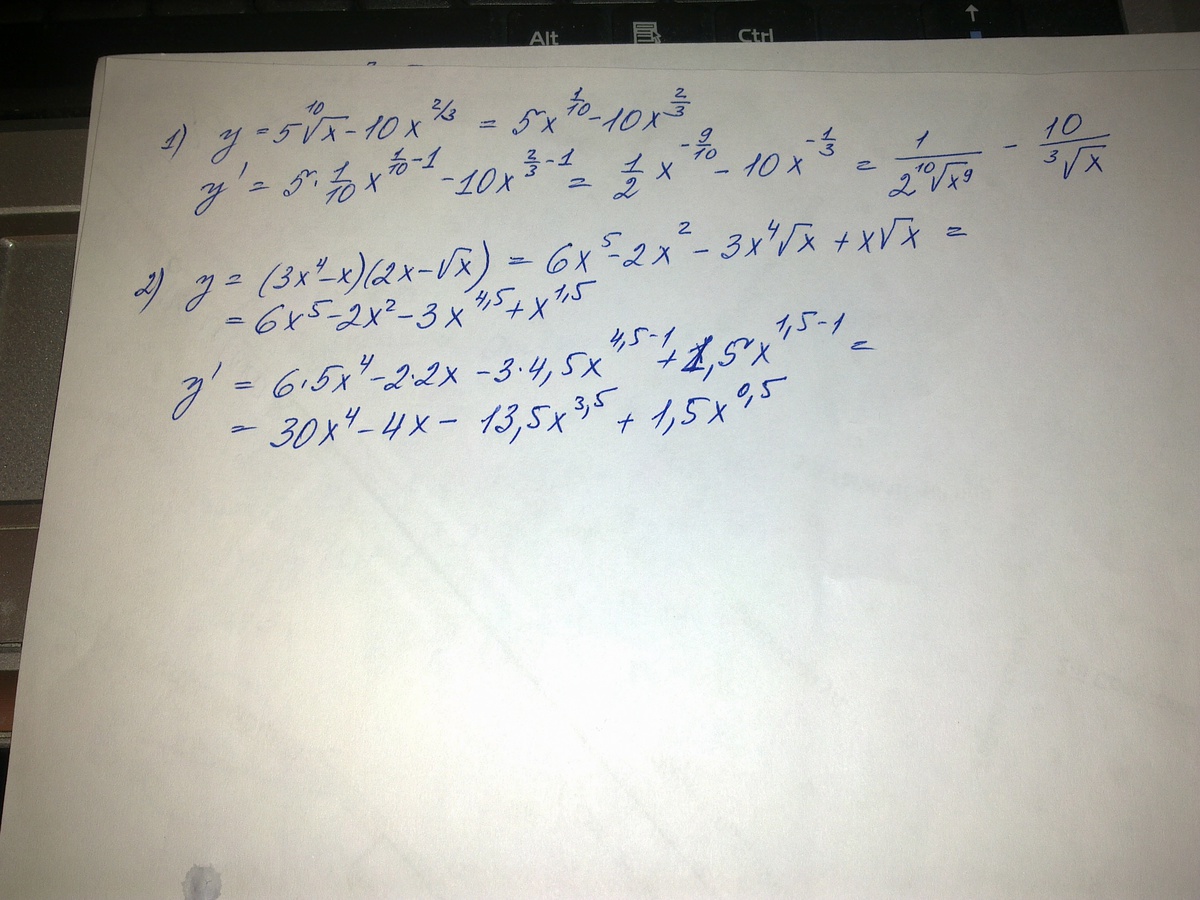 Alt Ctrl ↑
1) y = 5¹⁰√x - 10x^{2/3} = 5x^{1/10} - 10x^{2/3}
y' = 5·1/10 x^{1/10 - 1} - 10x^{2/3 - 1} = 1/2 x^{-9/10} - 10x^{-1/3} = 1/(2¹⁰√x⁹) - 10/(³√x)
2) y = (3x⁴-x)(2x-√x) = 6x⁵-2x² - 3x⁴√x + x√x =
= 6x⁵-2x²-3x^{4,5}+x^{1,5}
y' = 6·5x⁴-2·2x -3·4,5x^{4,5-1} + 1,5x^{1,5-1} =
= 30x⁴-4x - 13,5x^{3,5} + 1,5x^{0,5}